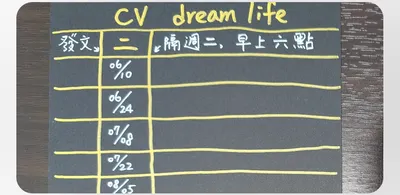 CV dream life
發文 二 隔週二、早上六點
06/10
06/24
07/08
07/22
08/05